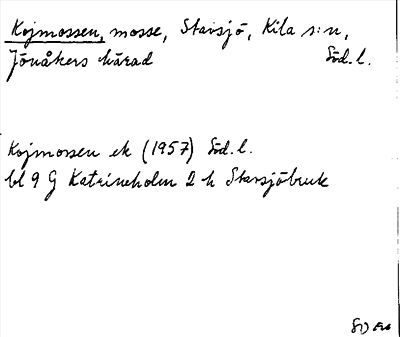 Kojmossen, mosse, Stavsjö, Kila s:n,
Jönåkers härad Söd. l.
Kojmossen ek (1957) Söd. l.
bl 9 G Katrineholm 2 h Stavsjöbruk